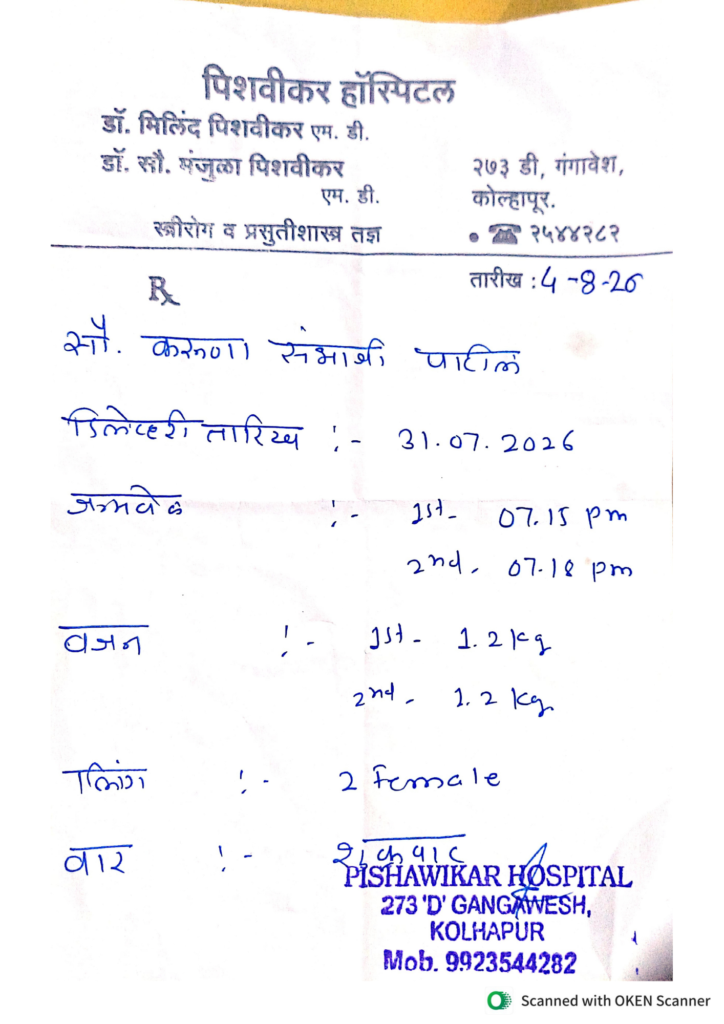 पिशवीकर हॉस्पिटल
डॉ. मिलिंद पिशवीकर एम. डी.
डॉ. सौ. मंजुळा पिशवीकर
एम. डी.
२७३ डी, गंगावेश,
कोल्हापूर.
स्त्रीरोग व प्रसुतीशास्त्र तज्ञ
• ☎ २५४४२८२
Rx
तारीख : 4-8-26
सौ. करुणा संभाजी पाटील
डिलेव्हरी तारिख :- 31.07.2026
जन्मवेळ :- 1st- 07.15 pm
2nd. 07.18 pm
वजन :- 1st- 1.2 kg
2nd- 1.2 kg
लिंग :- 2 Female
वार :- शुक्रवार
PISHAWIKAR HOSPITAL
273 'D' GANGAWESH,
KOLHAPUR
Mob. 9923544282
Scanned with OKEN Scanner